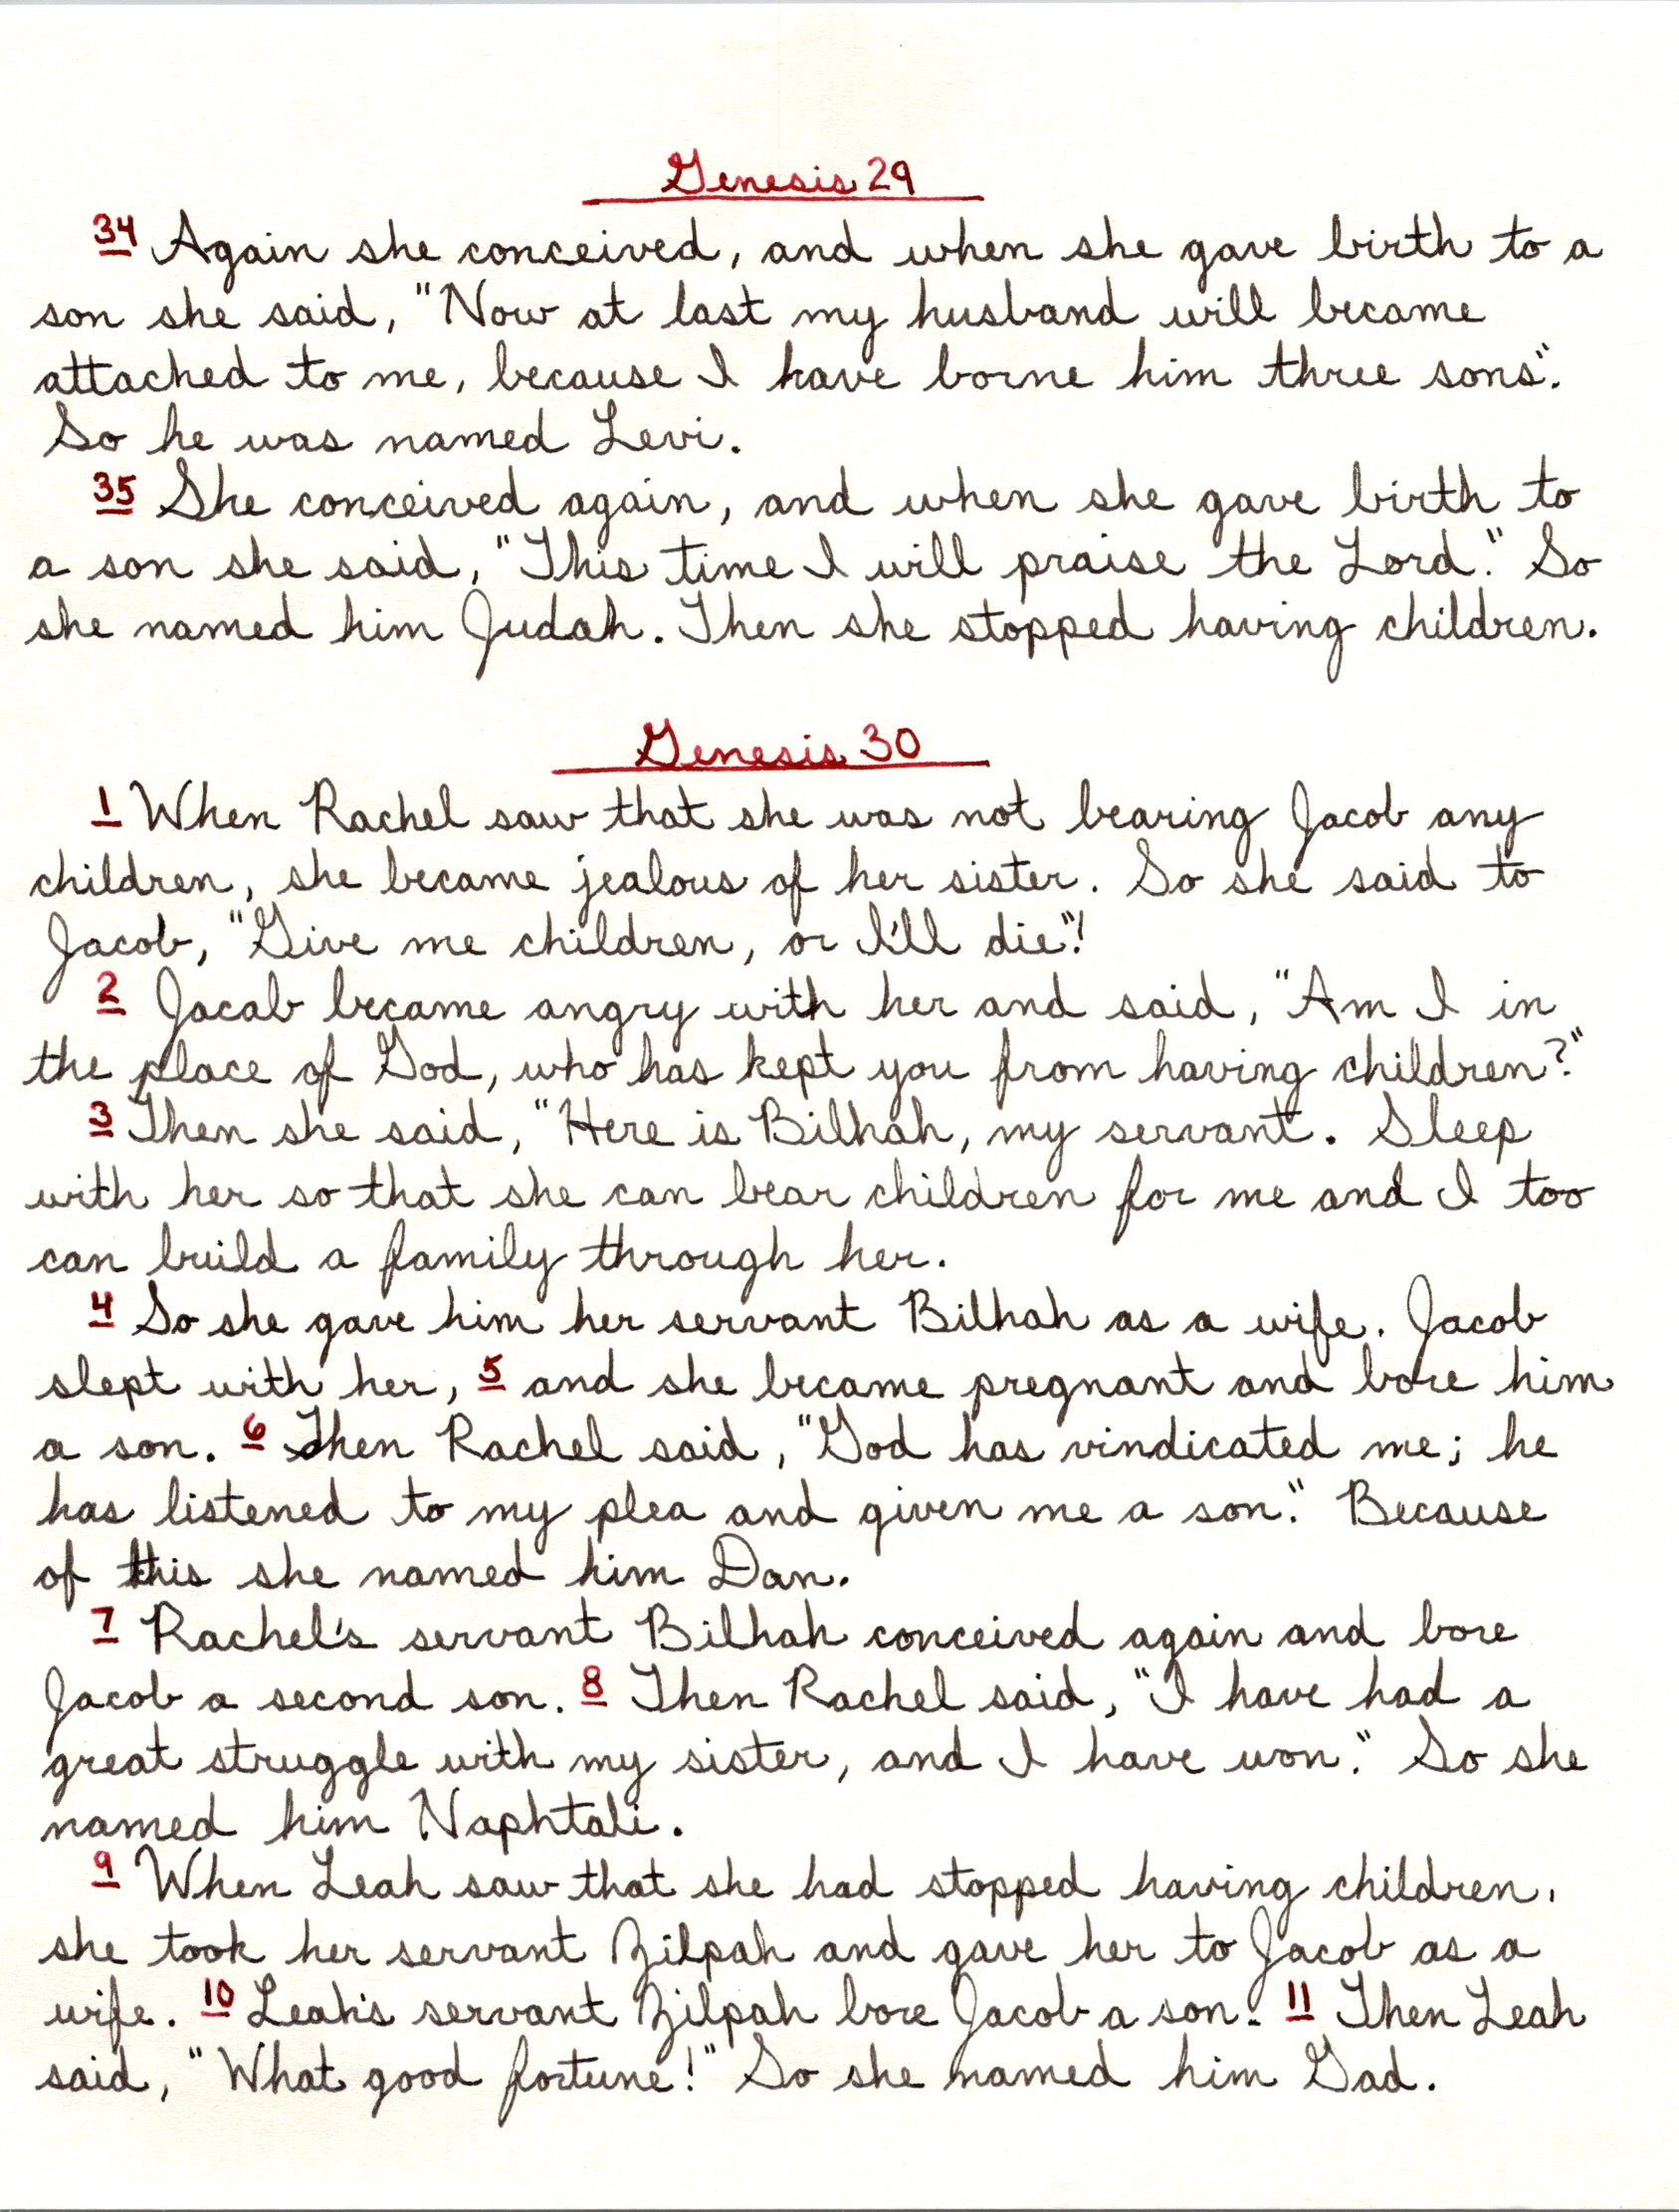 Genesis 29
34 Again she conceived, and when she gave birth to a
son she said, "Now at last my husband will became
attached to me, because I have borne him three sons".
So he was named Levi.
35 She conceived again, and when she gave birth to
a son she said, "This time I will praise the Lord." So
she named him Judah. Then she stopped having children.
Genesis 30
1 When Rachel saw that she was not bearing Jacob any
children, she became jealous of her sister. So she said to
Jacob, "Give me children, or I'll die"!
2 Jacab became angry with her and said, "Am I in
the place of God, who has kept you from having children?"
3 Then she said, "Here is Bilhah, my servant. Sleep
with her so that she can bear children for me and I too
can build a family through her.
4 So she gave him her servant Bilhah as a wife. Jacob
slept with her, 5 and she became pregnant and bore him
a son. 6 Then Rachel said, "God has vindicated me; he
has listened to my plea and given me a son." Because
of this she named him Dan.
7 Rachel's servant Bilhah conceived again and bore
Jacob a second son. 8 Then Rachel said, "I have had a
great struggle with my sister, and I have won." So she
named him Naphtali.
9 When Leah saw that she had stopped having children,
she took her servant Zilpah and gave her to Jacob as a
wife. 10 Leah's servant Zilpah bore Jacob a son. 11 Then Leah
said, "What good fortune!" So she named him Gad.